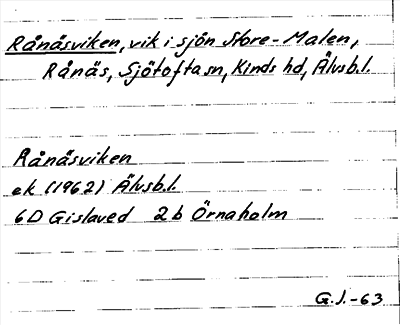 Rånäsviken, vik i sjön Store-Malen,
Rånäs, Sjötofta sn, Kinds hd, Älvsb.l.
Rånäsviken
ek (1962) Älvsb.l.
6D Gislaved 2b Örnaholm
G.J.-63